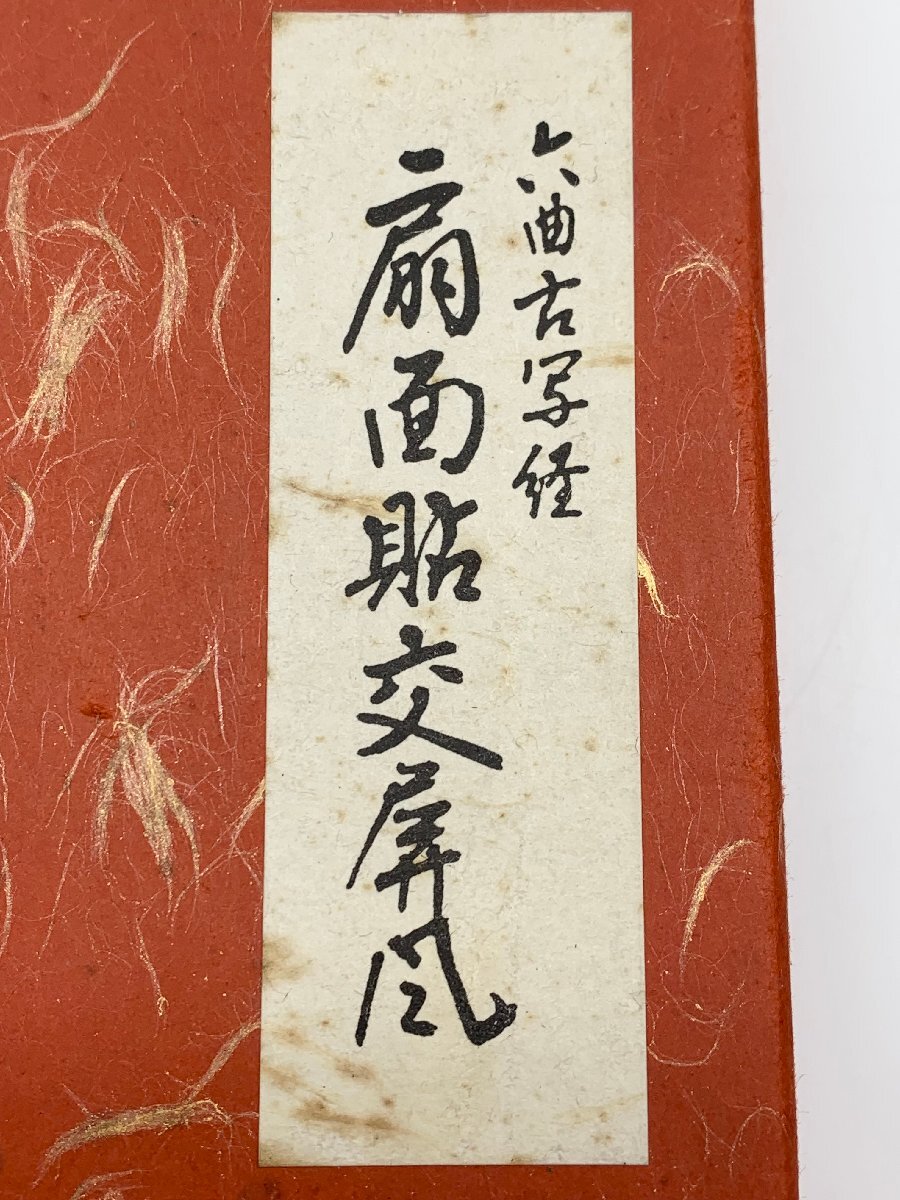 六曲古写経
扇面貼交屏風